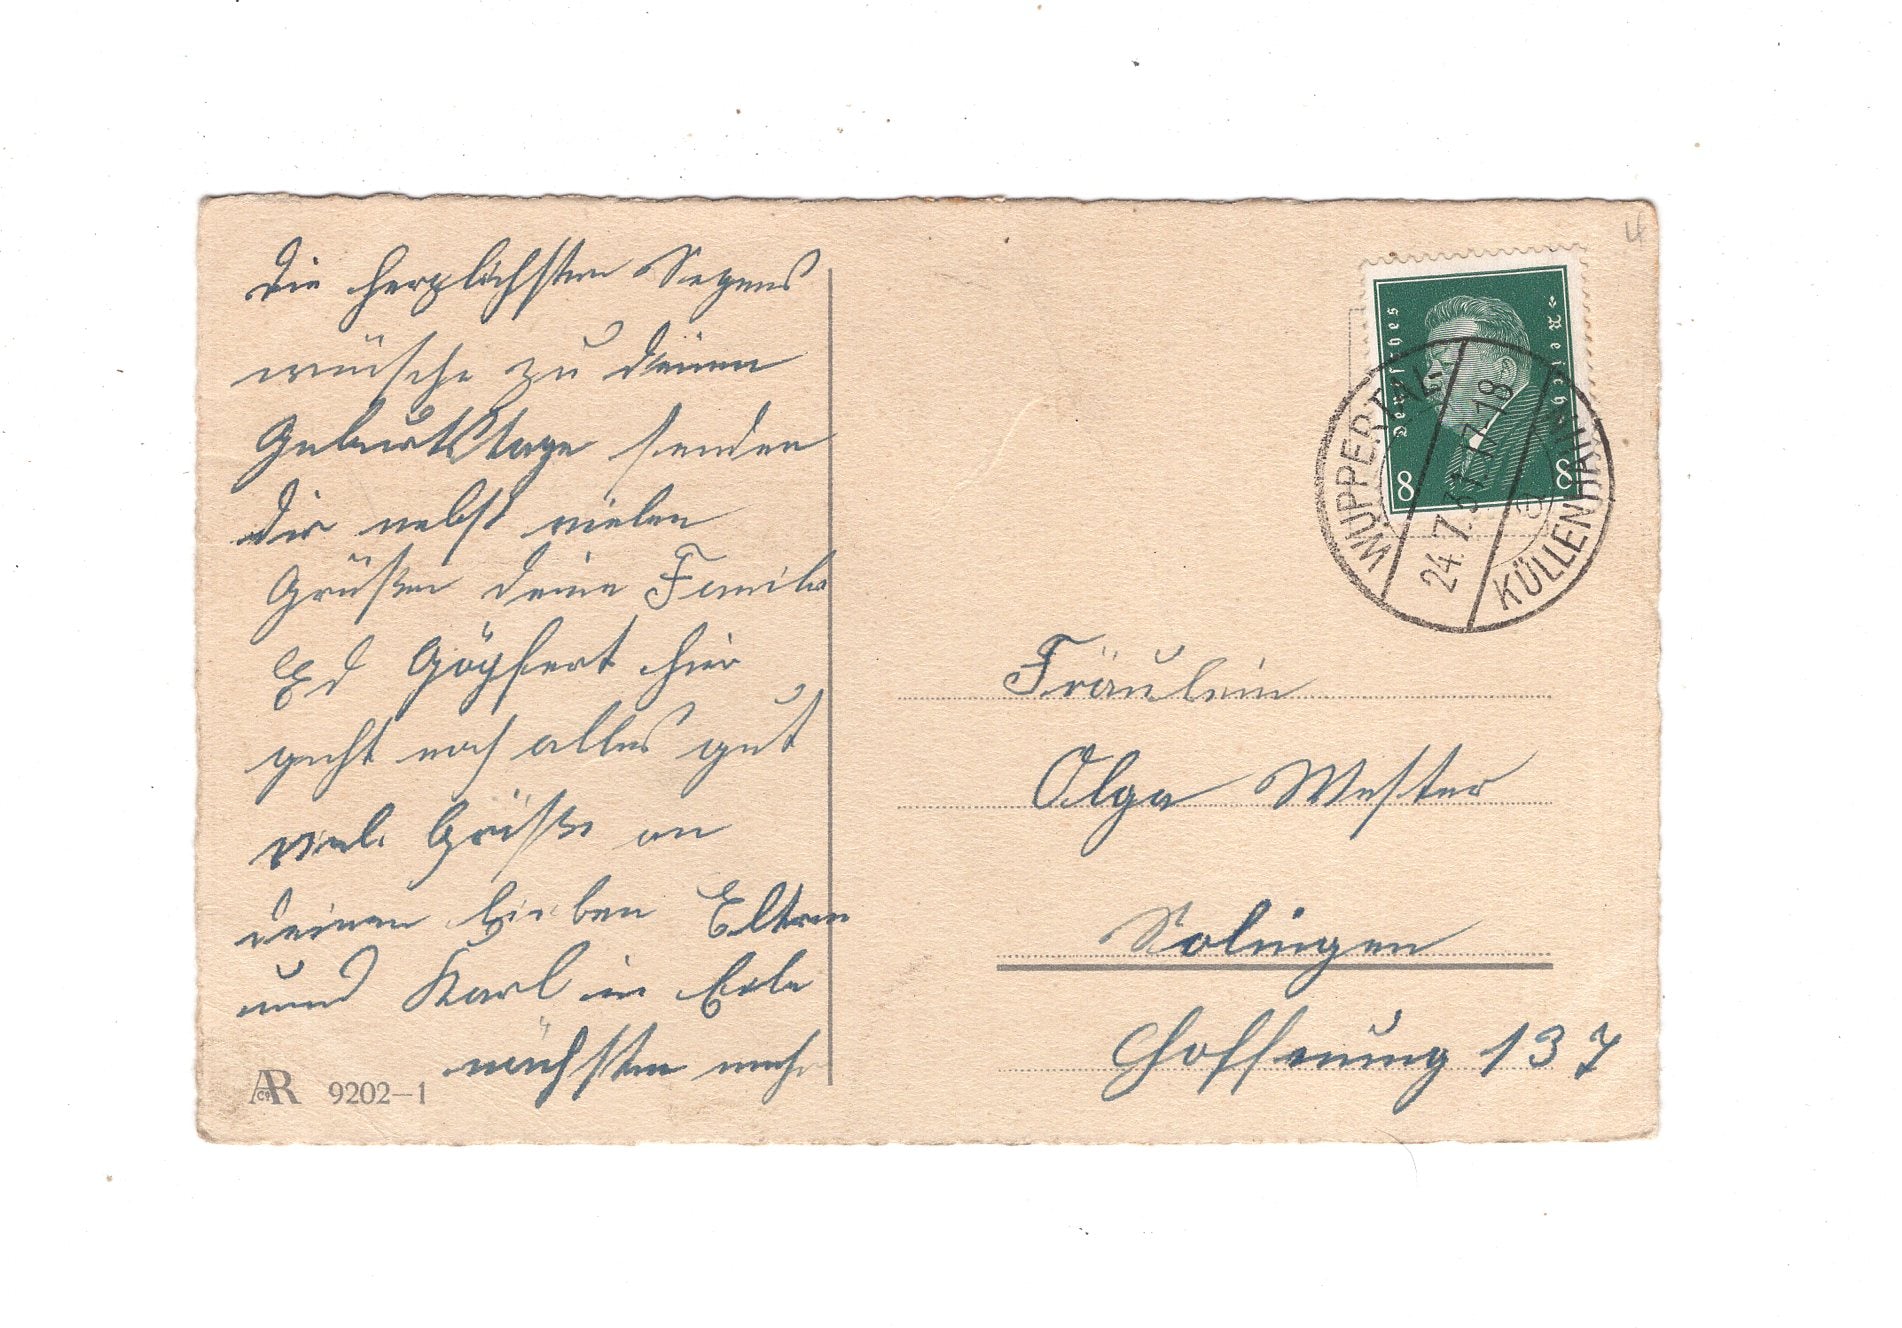 Die herzlichsten Segens
wünsche zu deinem
Geburtstage senden
dir nebst vielen
Grüßen deine Familie
Ed Göpfert hier
geht noch alles gut
viel Grüße an
deinen lieben Eltern
und Karl in
nächsten mehr
ACR 9202-1
Deutsches Reich
8 8
WUPPERTAL-
24.7.31.17-18
a
KÜLLENHAHN
Fräulein
Olga Wester
Solingen
Hoffnung 137
4